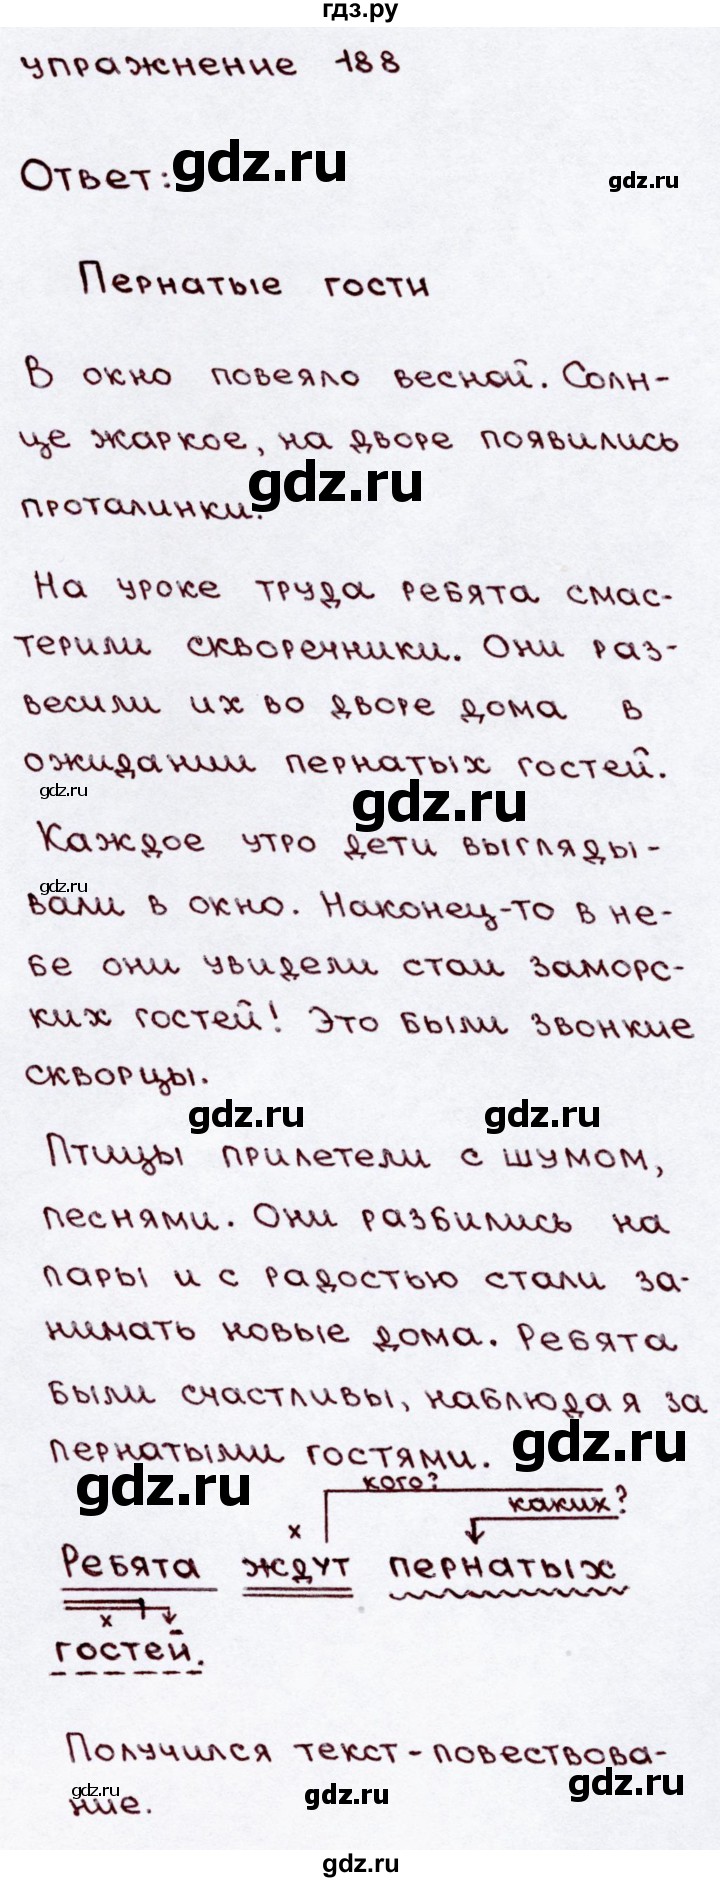 гдз.ру
упражнение 188
Ответ: gdz.ru
gdz.ru
Пернатые гости
В окно повеяло весной. Солн-
це жаркое, на дворе появились
gdz.ru
проталинки.
На уроке труда ребята смас-
терили скворечники. Они раз-
весили их во дворе дома в
ожидании пернатых гостей.
gdz.ru
gdz.ru
Каждое утро дети выгляды-
gdz.ru
вали в окно. Наконец-то в не-
бе они увидели стаи заморс-
ких гостей! Это были звонкие
скворцы.
gdz.ru
gdz.ru
Птицы прилетели с шумом,
песнями. Они разбились на
пары и с радостью стали за-
нимать новые дома. Ребята
были счастливы, наблюдая за
пернатыми гостями.
gdz.ru
gdz.ru
кого?
каких?
х
Ребята ждут пернатых
х
гостей.
Получился текст-повествова-
gdz.ru
ние.
gdz.ru
gdz.ru
gdz.ru